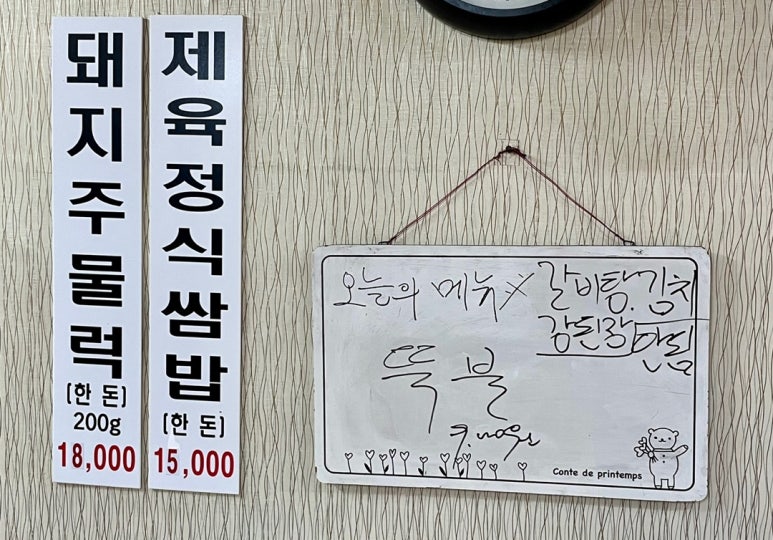 돼지주물럭
[한 돈]
200g
18,000
제육정식쌈밥
[한 돈]
15,000
오늘의 메뉴 ※ 갈비탕.김치
강된장 안됨
뚝불
9.000원
Conte de printemps